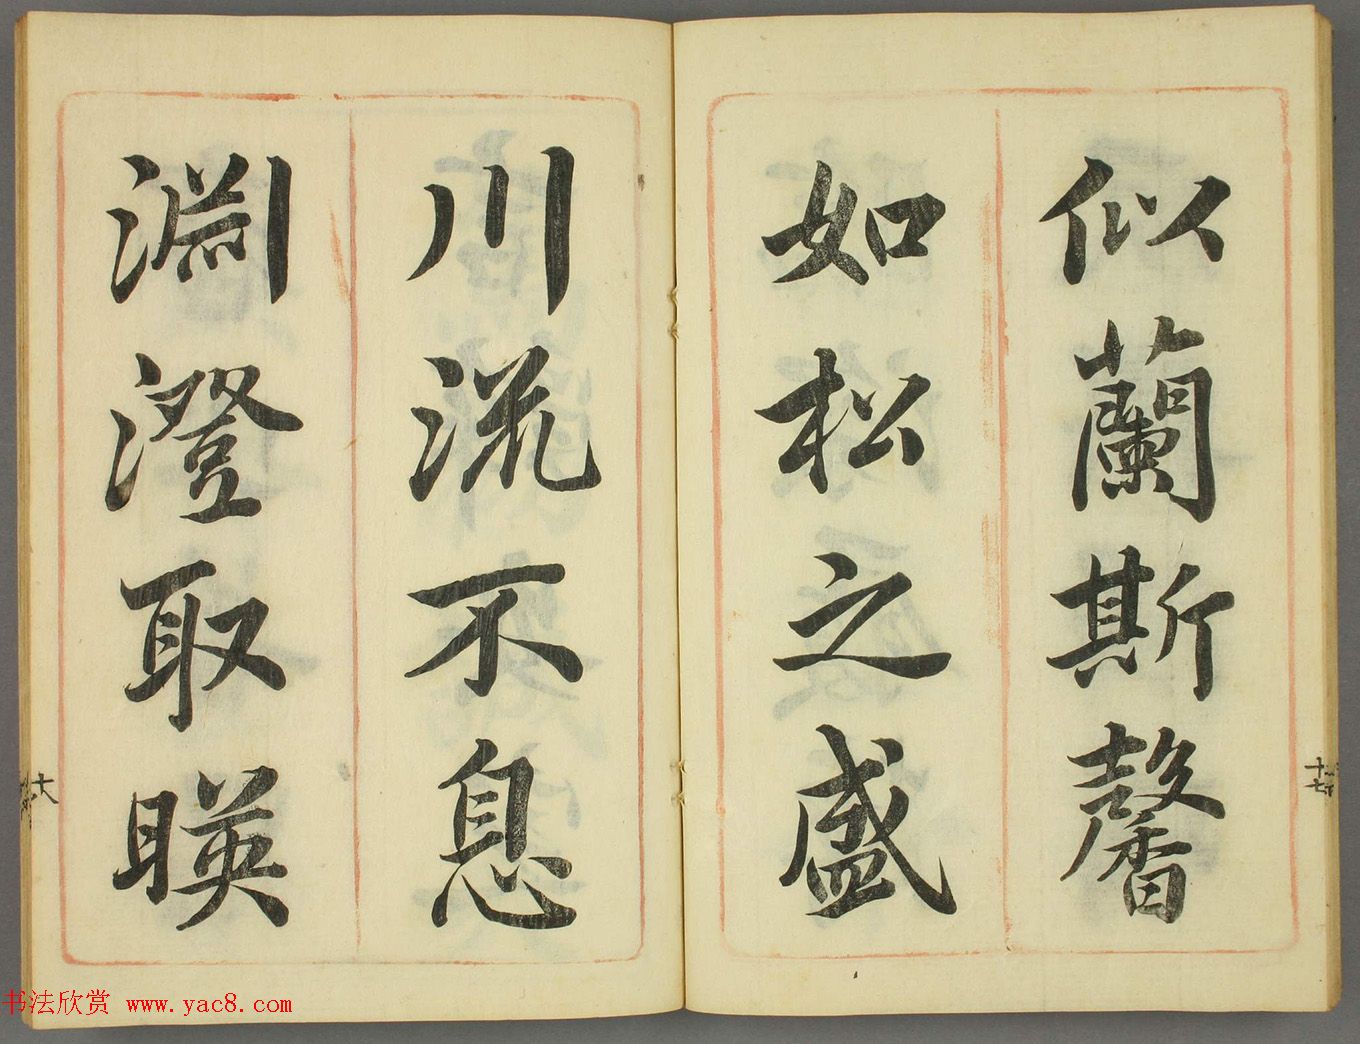 似蘭斯馨
如松之盛
川流不息
淵澄取暎
十七
十八
书法欣赏 www.yac8.com